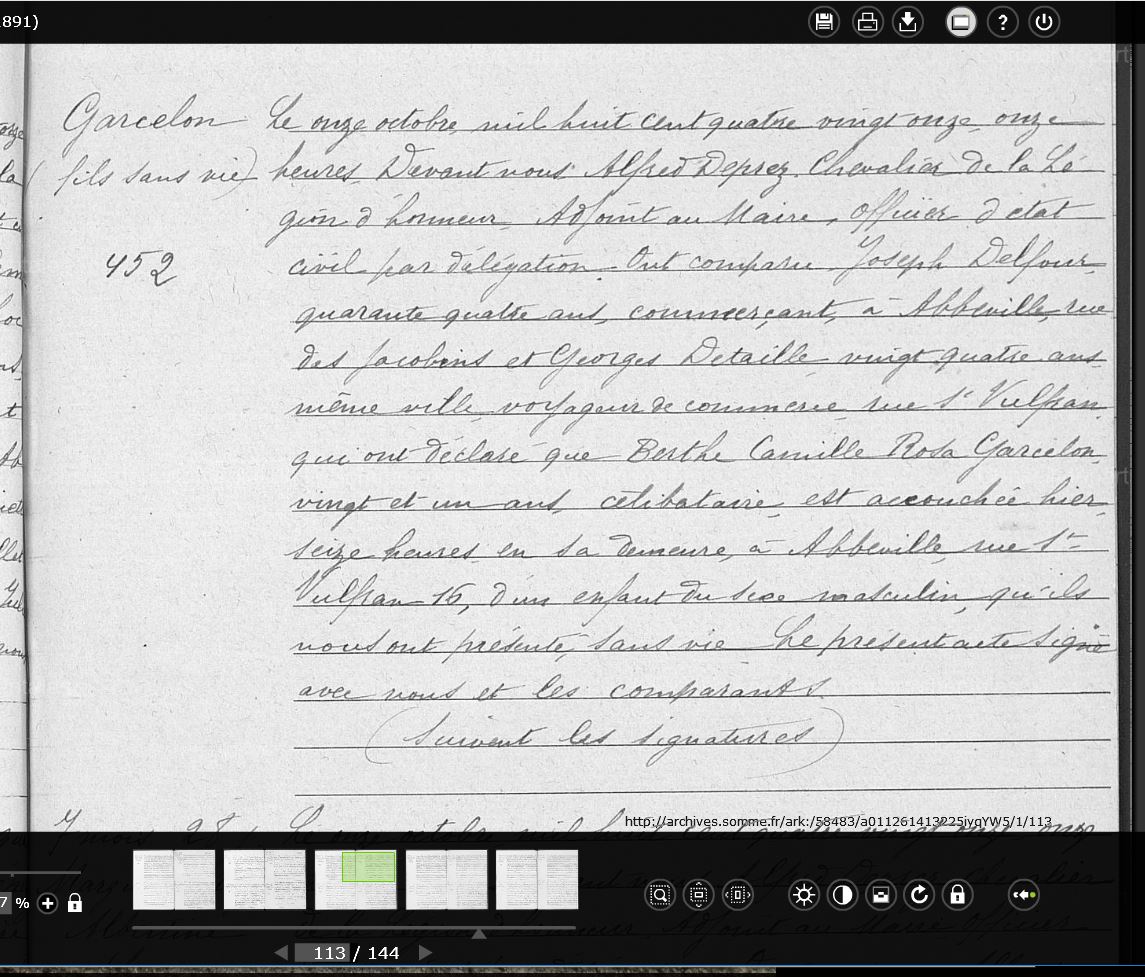 891)
Garcelon
(fils sans vie)
452
Le onze octobre mil huit cent quatre vingt onze, onze
heures Devant nous Alfred Deprez Chevalier de la Lé
gion d'honneur, Adjoint au Maire, officier d'état
civil par délégation. Ont comparu Joseph Delfour,
quarante quatre ans, commerçant, à Abbeville, rue
des Jacobins et Georges Detaille vingt quatre ans
même ville, voyageur de commerce rue St Vulfran,
qui ont déclaré que Berthe Camille Rosa Garcelon,
vingt et un ans, célibataire, est accouchée hier,
seize heures en sa demeure, à Abbeville, rue St
Vulfran 16, d'un enfant du sexe masculin, qu'ils
nous ont présenté, sans vie Le présent acte signé
avec nous et les comparants.
(Suivent les signatures)
http://archives.somme.fr/ark:/58483/a011261413225iyqYW5/1/113
7 %
113 / 144